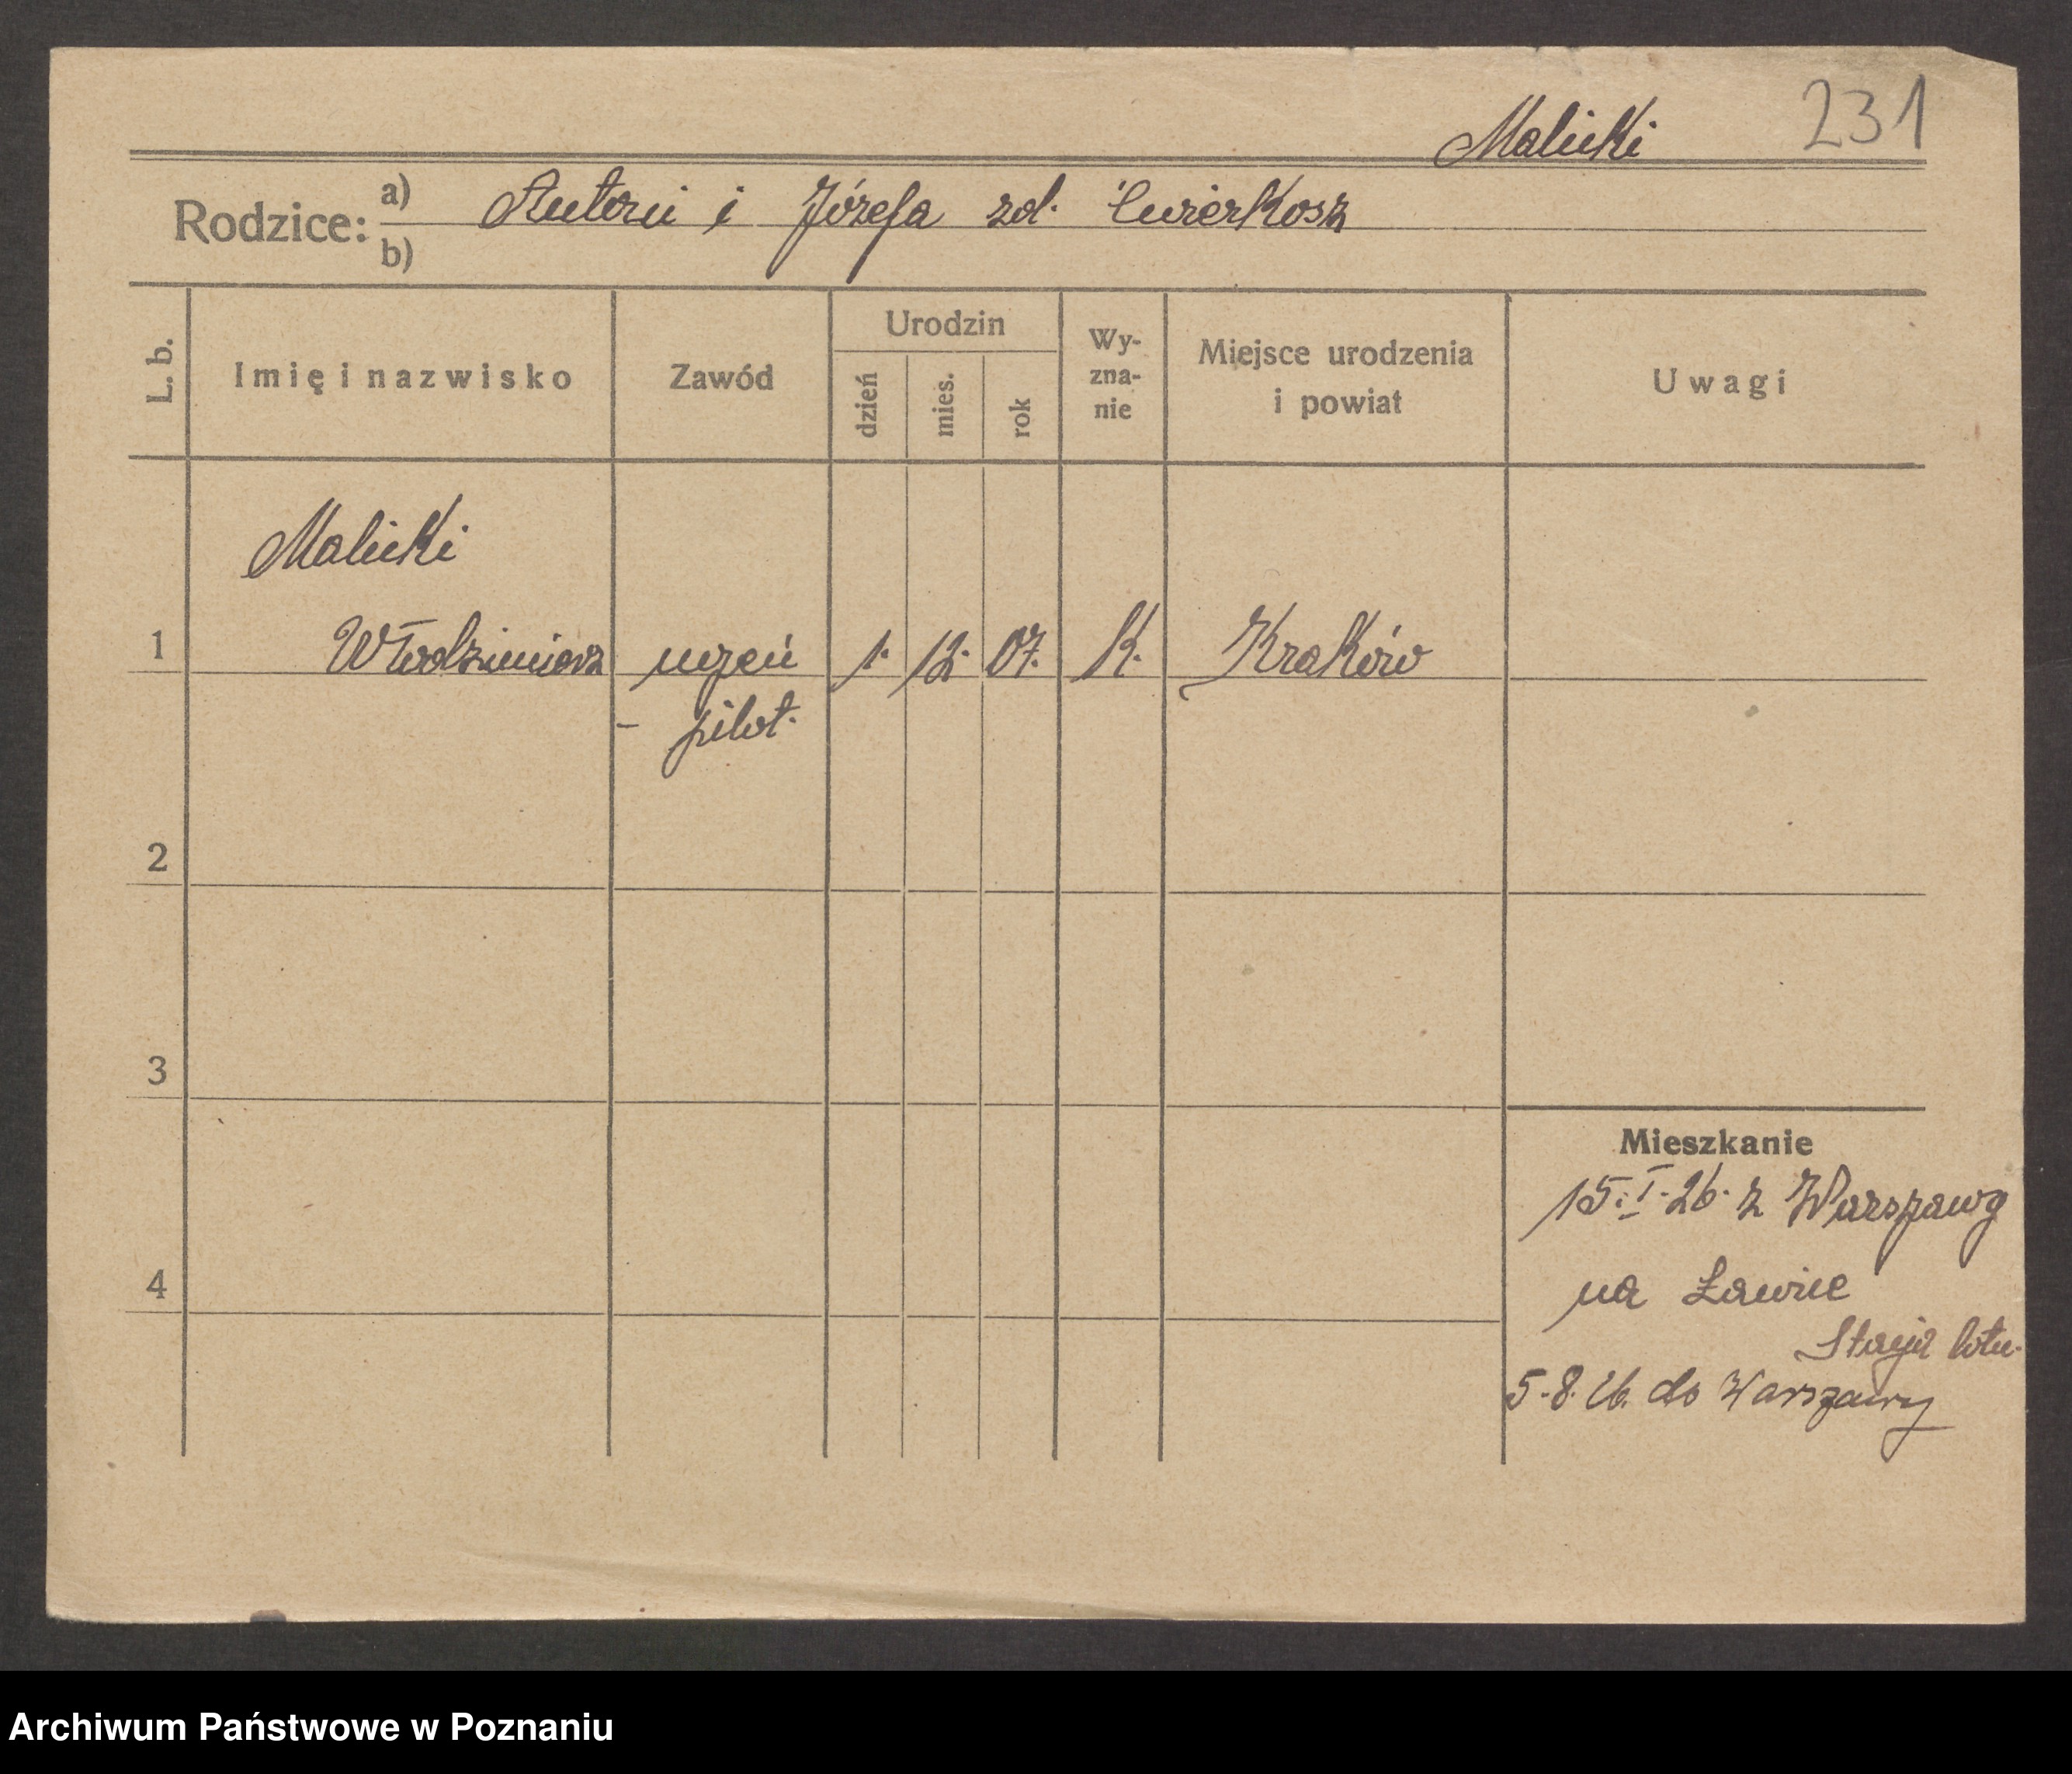 Malicki 231
Rodzice: a) Antoni i Józefa zd. Ćwierkosz
b)
L. b. Imię i nazwisko Zawód Urodzin dzień mies. rok Wy-zna-nie Miejsce urodzenia i powiat Uwagi
Malicki
1 Włodzimierz uczeń 1. 12. 07. K. Kraków
- pilot.
2
3
Mieszkanie
15.I.26. z Warszawy
4 na Ławice
Stacja lotn.
5.8.26. do Warszawy
Archiwum Państwowe w Poznaniu